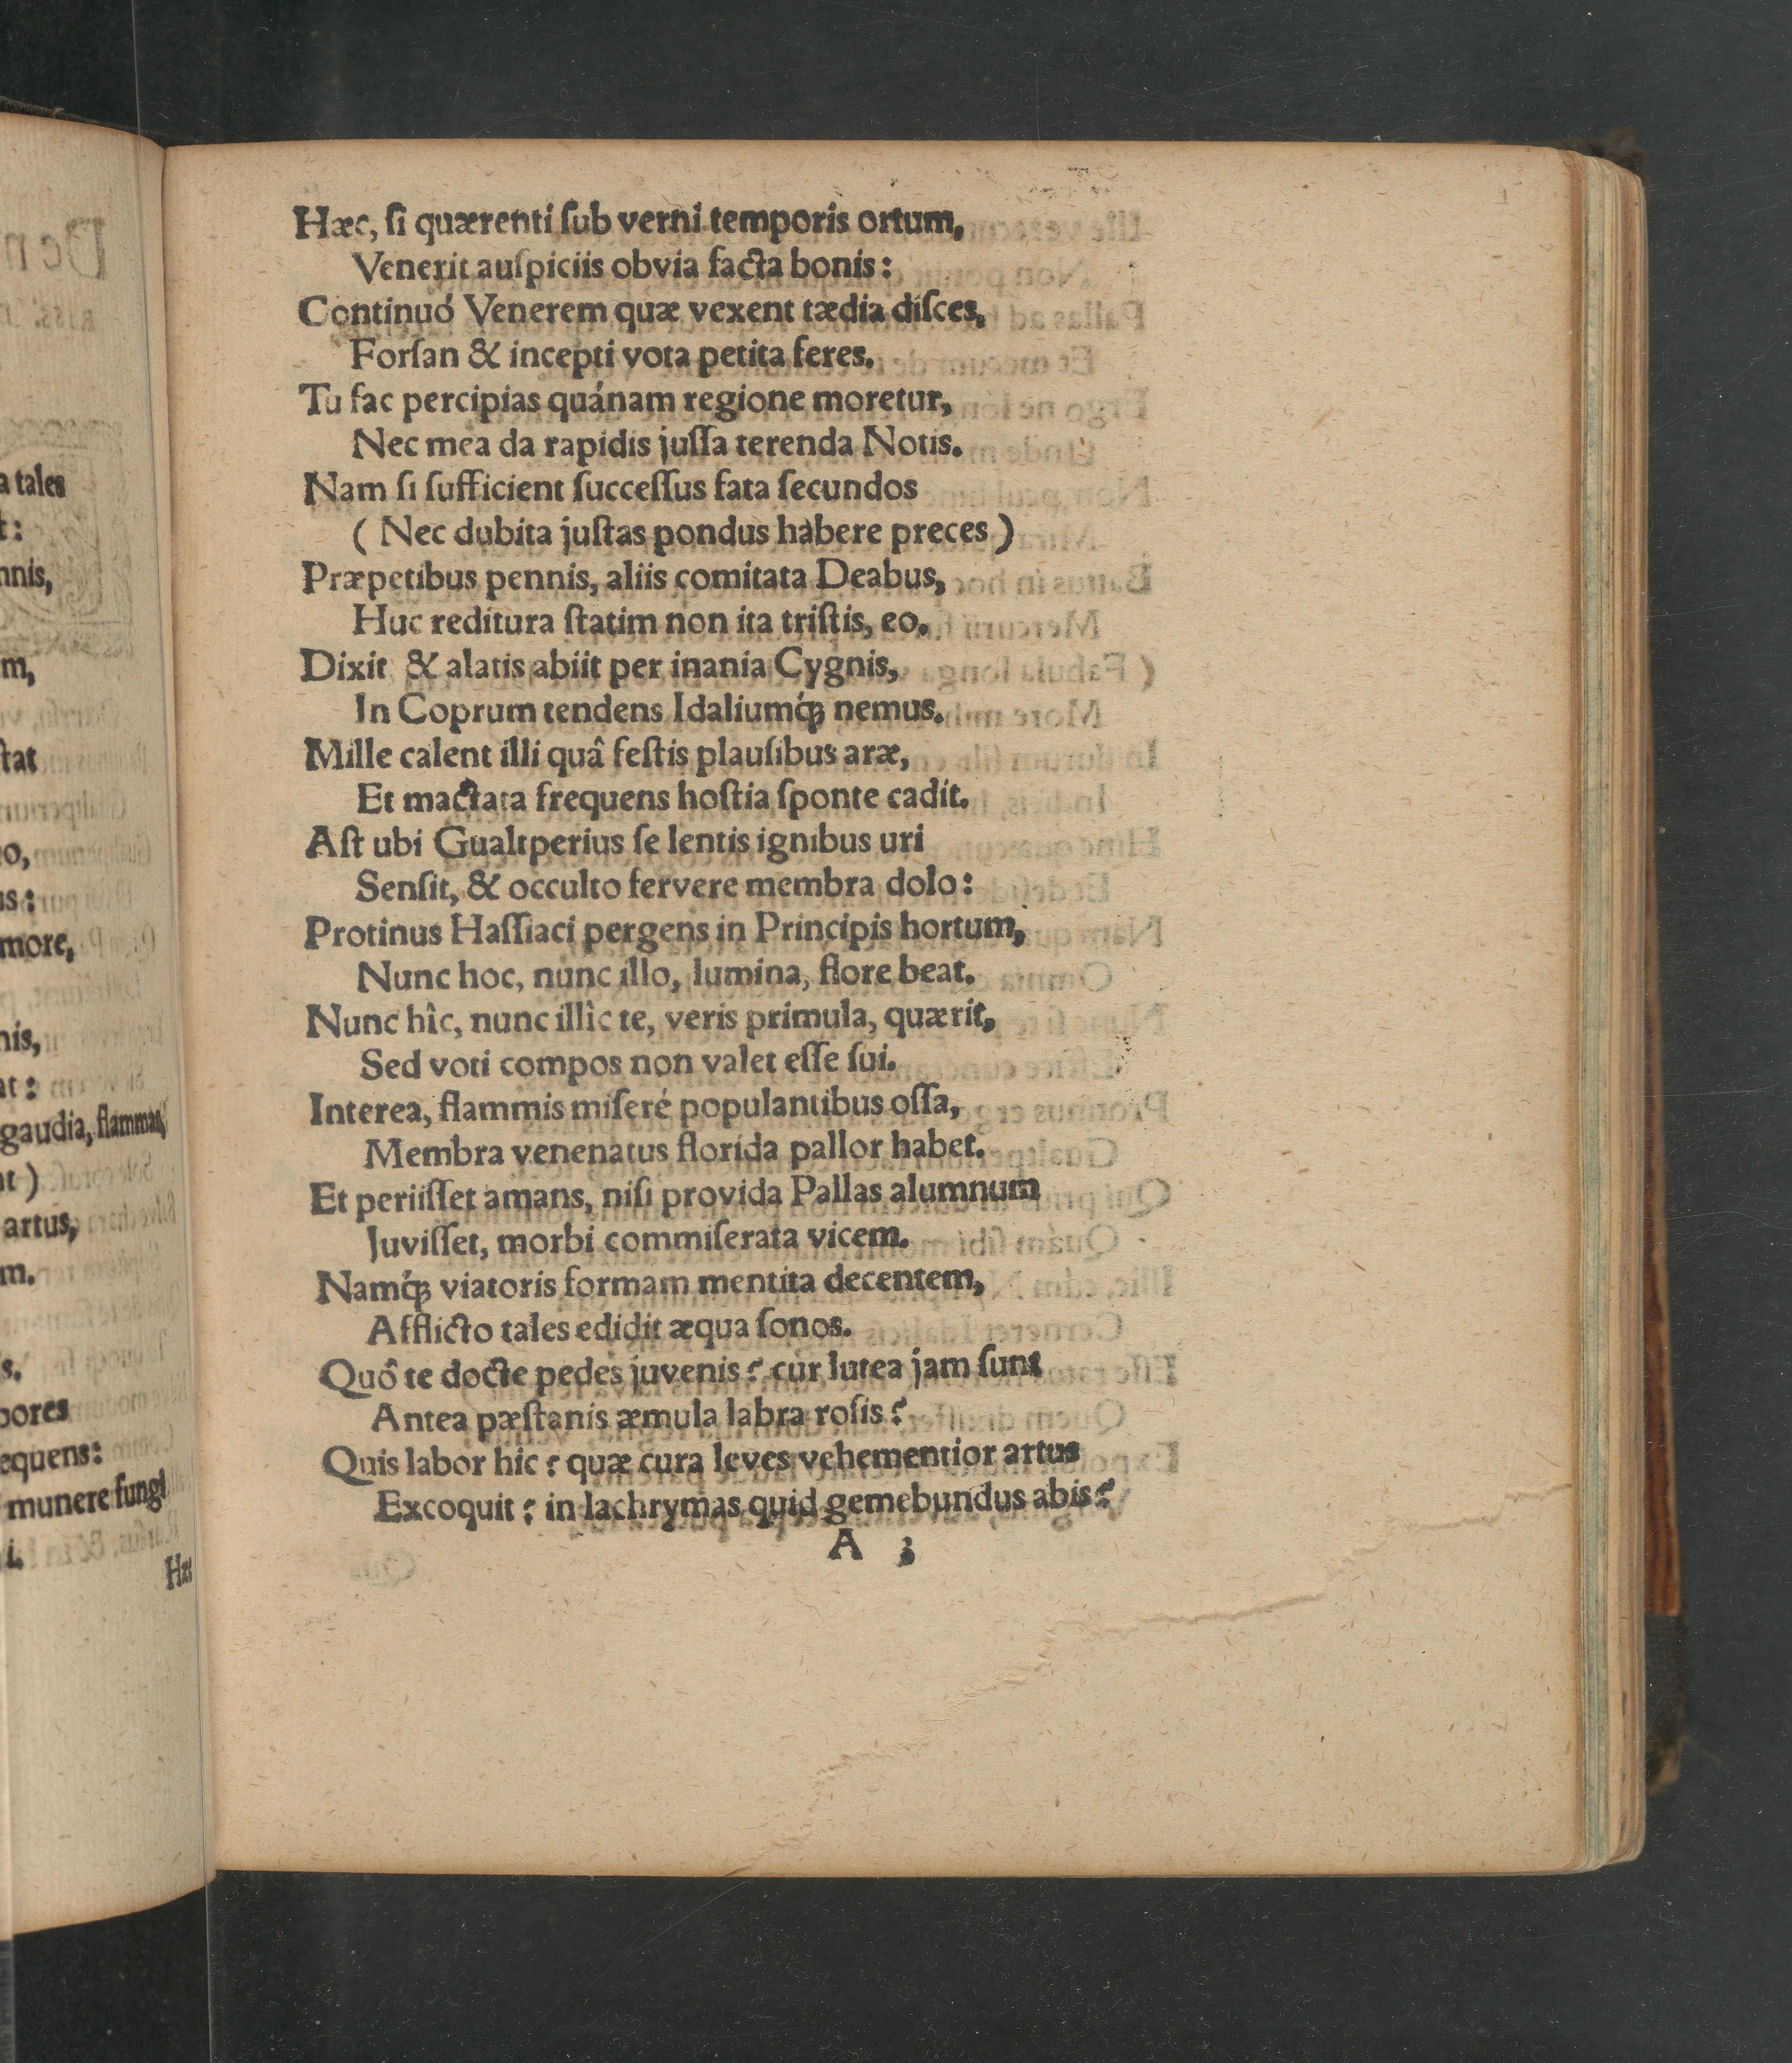 Hæc, ſi quærenti ſub verni temporis ortum,
Venerit auſpiciis obvia facta bonis:
Continuó Venerem quæ vexent tædia diſces,
Forſan & incepti vota petita feres.
Tu fac percipias quánam regione moretur,
Nec mea da rapidis juſſa terenda Notis.
Nam ſi ſufficient ſucceſſus fata ſecundos
( Nec dubita juſtas pondus habere preces )
Præpetibus pennis, aliis comitata Deabus,
Huc reditura ſtatim non ita triſtis, eo.
Dixit & alatis abiit per inania Cygnis,
In Coprum tendens Idaliumq́; nemus.
Mille calent illi quâ feſtis plauſibus aræ,
Et mactata frequens hoſtia ſponte cadit.
Aſt ubi Gualtperius ſe lentis ignibus uri
Senſit, & occulto fervere membra dolo:
Protinus Haſſiaci pergens in Principis hortum,
Nunc hoc, nunc illo, lumina, flore beat.
Nunc hîc, nunc illîc te, veris primula, quærit,
Sed voti compos non valet eſſe ſui.
Interea, flammis miſeré populantibus oſſa,
Membra venenatus florida pallor habet.
Et periiſſet amans, niſi provida Pallas alumnum
Juviſſet, morbi commiſerata vicem.
Namq́; viatoris formam mentita decentem,
Afflicto tales edidit æqua ſonos.
Quô te docte pedes juvenis? cur lutea jam ſunt
Antea pæſtanis æmula labra roſis?
Quis labor hic? quæ cura leves vehementior artus
Excoquit? in lachrymas quid gemebundus abis?
A 3
a tales
t:
nnis,
m,
ſtat
us:
more,
nis,
at:
gaudia, flammas,
nt )
artus,
m.
s.
pores
equens:
munere fungi
i.
Hæc